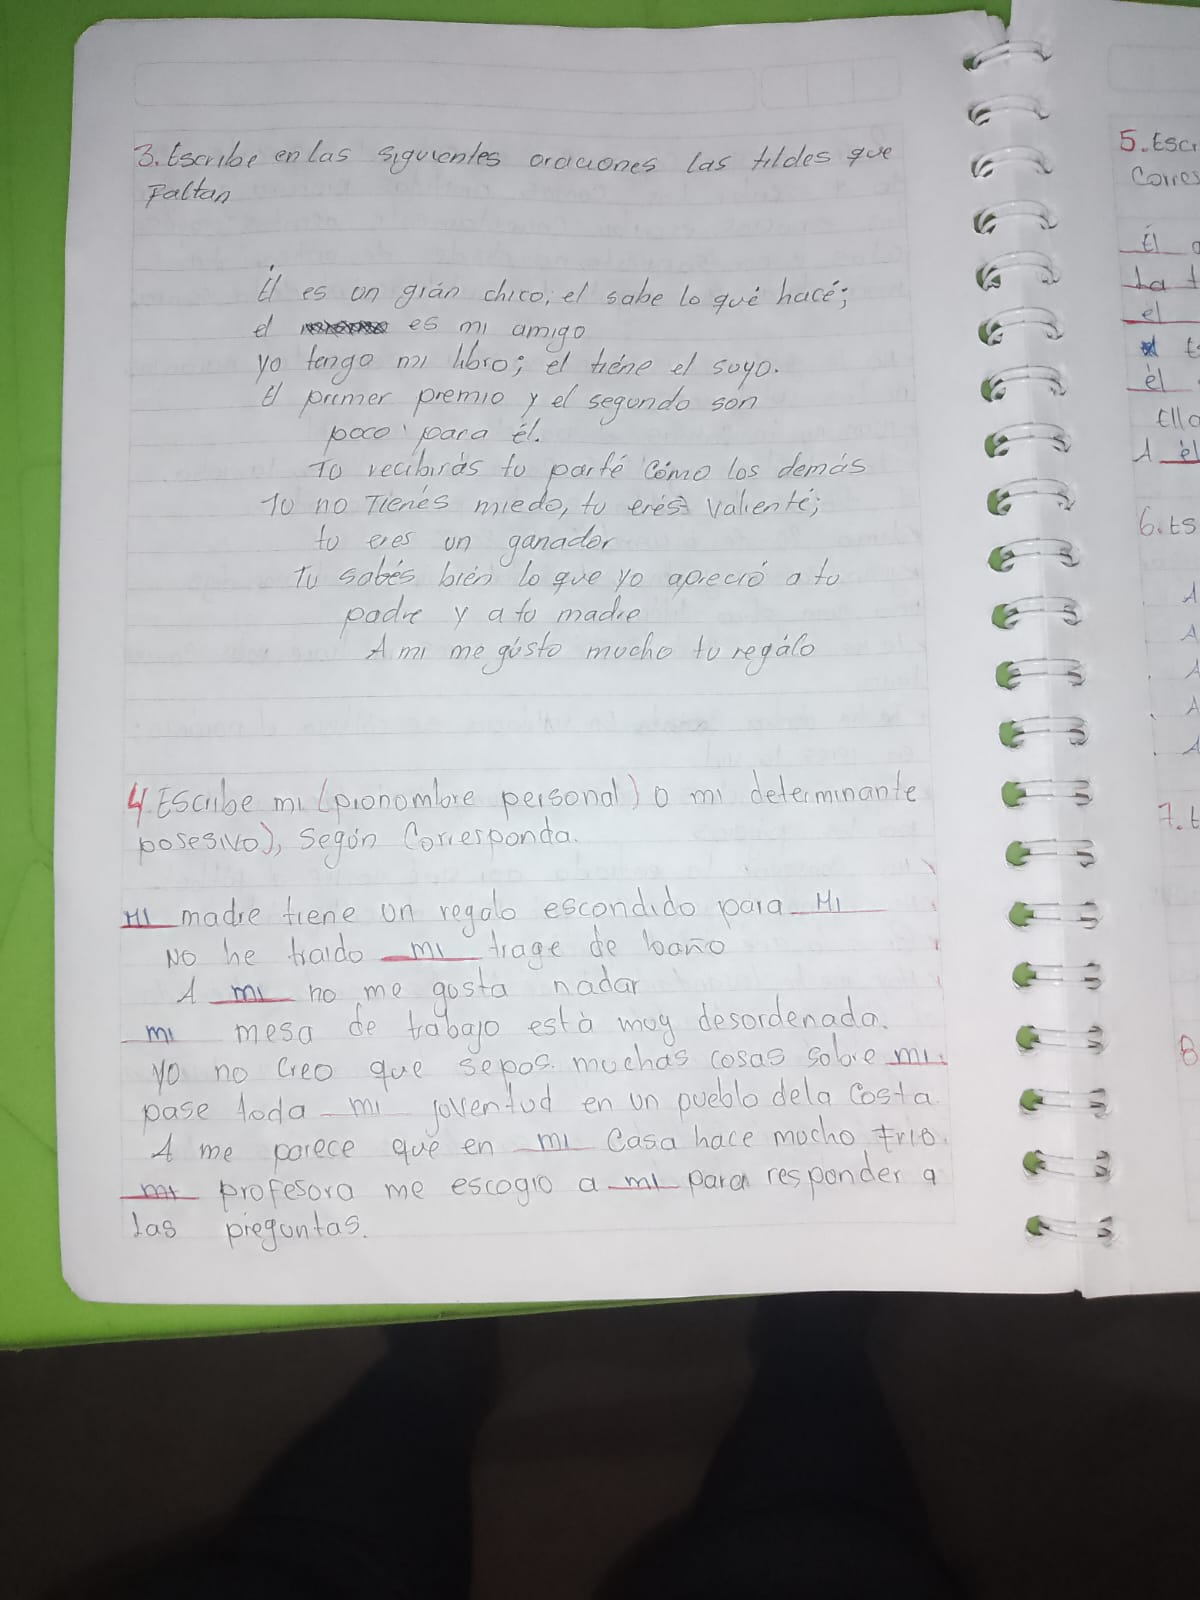 3. Escribe en las siguientes oraciones las tildes que
Faltan
Él es un grán chico; el sabe lo qué hacé;
el es mi amigo
yo tengo mi libro; el tiéne el suyo.
El primer premio y el segundo son
poco para él.
Tu recibirás tu parté cómo los demás
Tu no Tienés miedo, tu erés valienté;
tu eres un ganador
Tu sabés bién lo que yo apreció a tu
padre y a tu madre
A mi me gústo mucho tu regálo
4 Escribe mi (pronombre personal) o mi determinante
posesivo), Según Corresponda.
Mi madre tiene un regalo escondido para Mi
No he traido mi trage de baño
A mi no me gusta nadar
mi mesa de trabajo está muy desordenada.
yo no Creo que sepas muchas cosas sobre mi.
pase toda mi joventud en un pueblo dela Costa.
A me parece qué en mi Casa hace mucho Frio.
mi profesora me escogio a mi para responder a
las preguntas.
5. Escr
Corres
Él
ha t
el
él
Ella
A él
6. Es
A
A
A
A
A
7. E
8